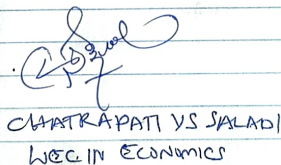 CHATRAPATI VS SALADI
LEC. IN ECONOMICS